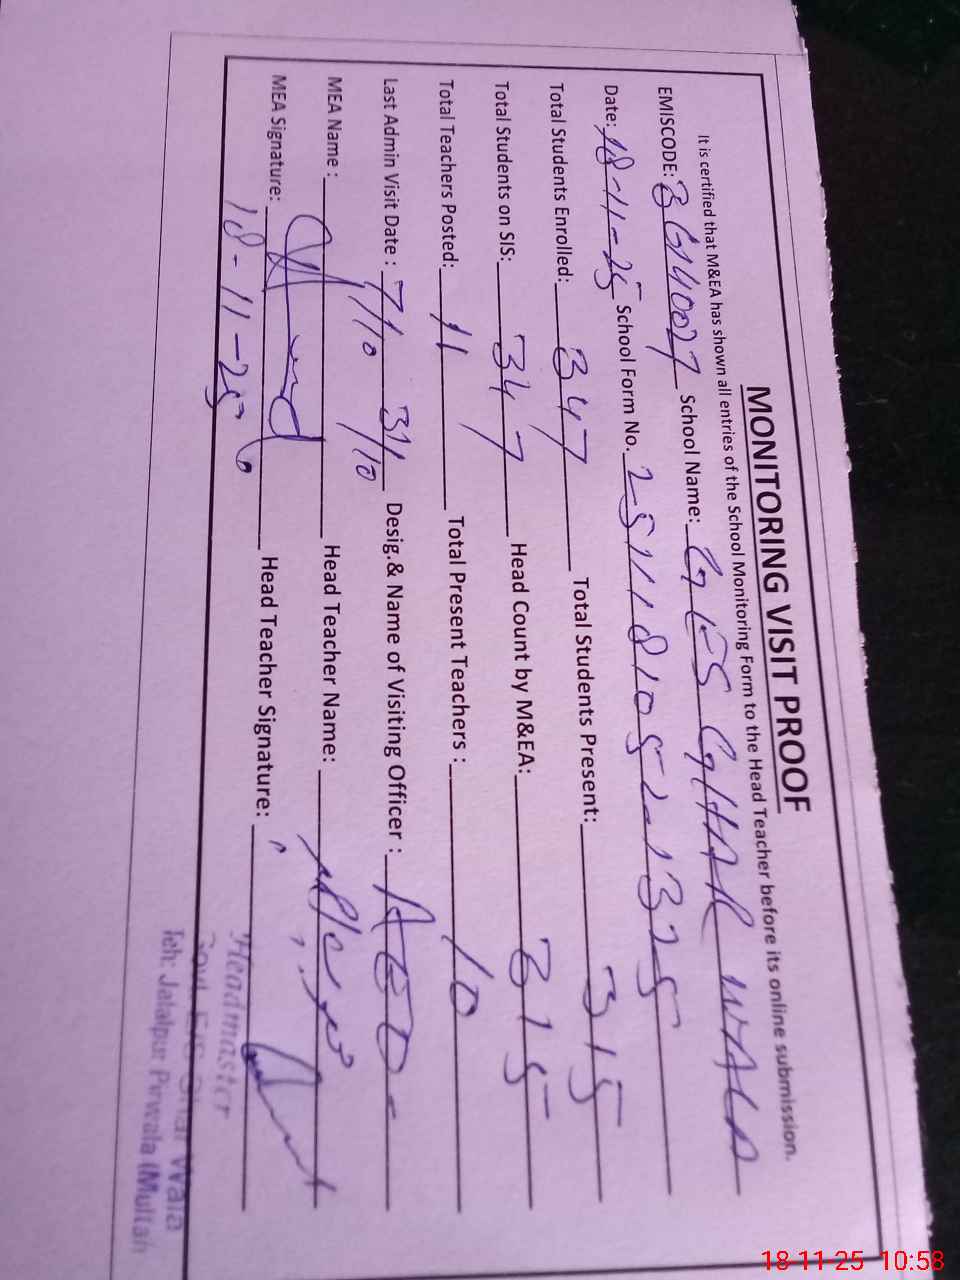 MONITORING VISIT PROOF
It is certified that M&EA has shown all entries of the School Monitoring Form to the Head Teacher before its online submission.
EMISCODE: School Name: GES GHAR WALA
Date: 18-11-25 School Form No.
Total Students Enrolled: 347 Total Students Present: 315
Total Students on SIS: 347 Head Count by M&EA: 315
Total Teachers Posted: 11 Total Present Teachers : 10
Last Admin Visit Date : 7/10 31/10 Desig.& Name of Visiting Officer : AEO
MEA Name : Head Teacher Name:
MEA Signature: Head Teacher Signature:
18-11-25
Headmaster
Wala
Teh: Jalalpur Pirwala (Multan
18-11-25 10:58